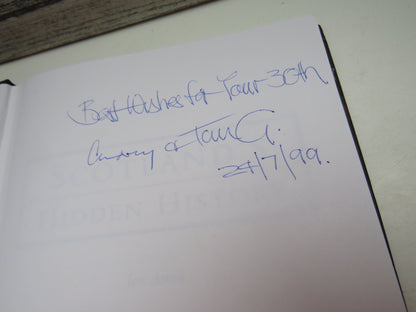 Best Wishes for Your 30th
& Ian G.
24/7/99.
SCOTLAND
HIDDEN HIST